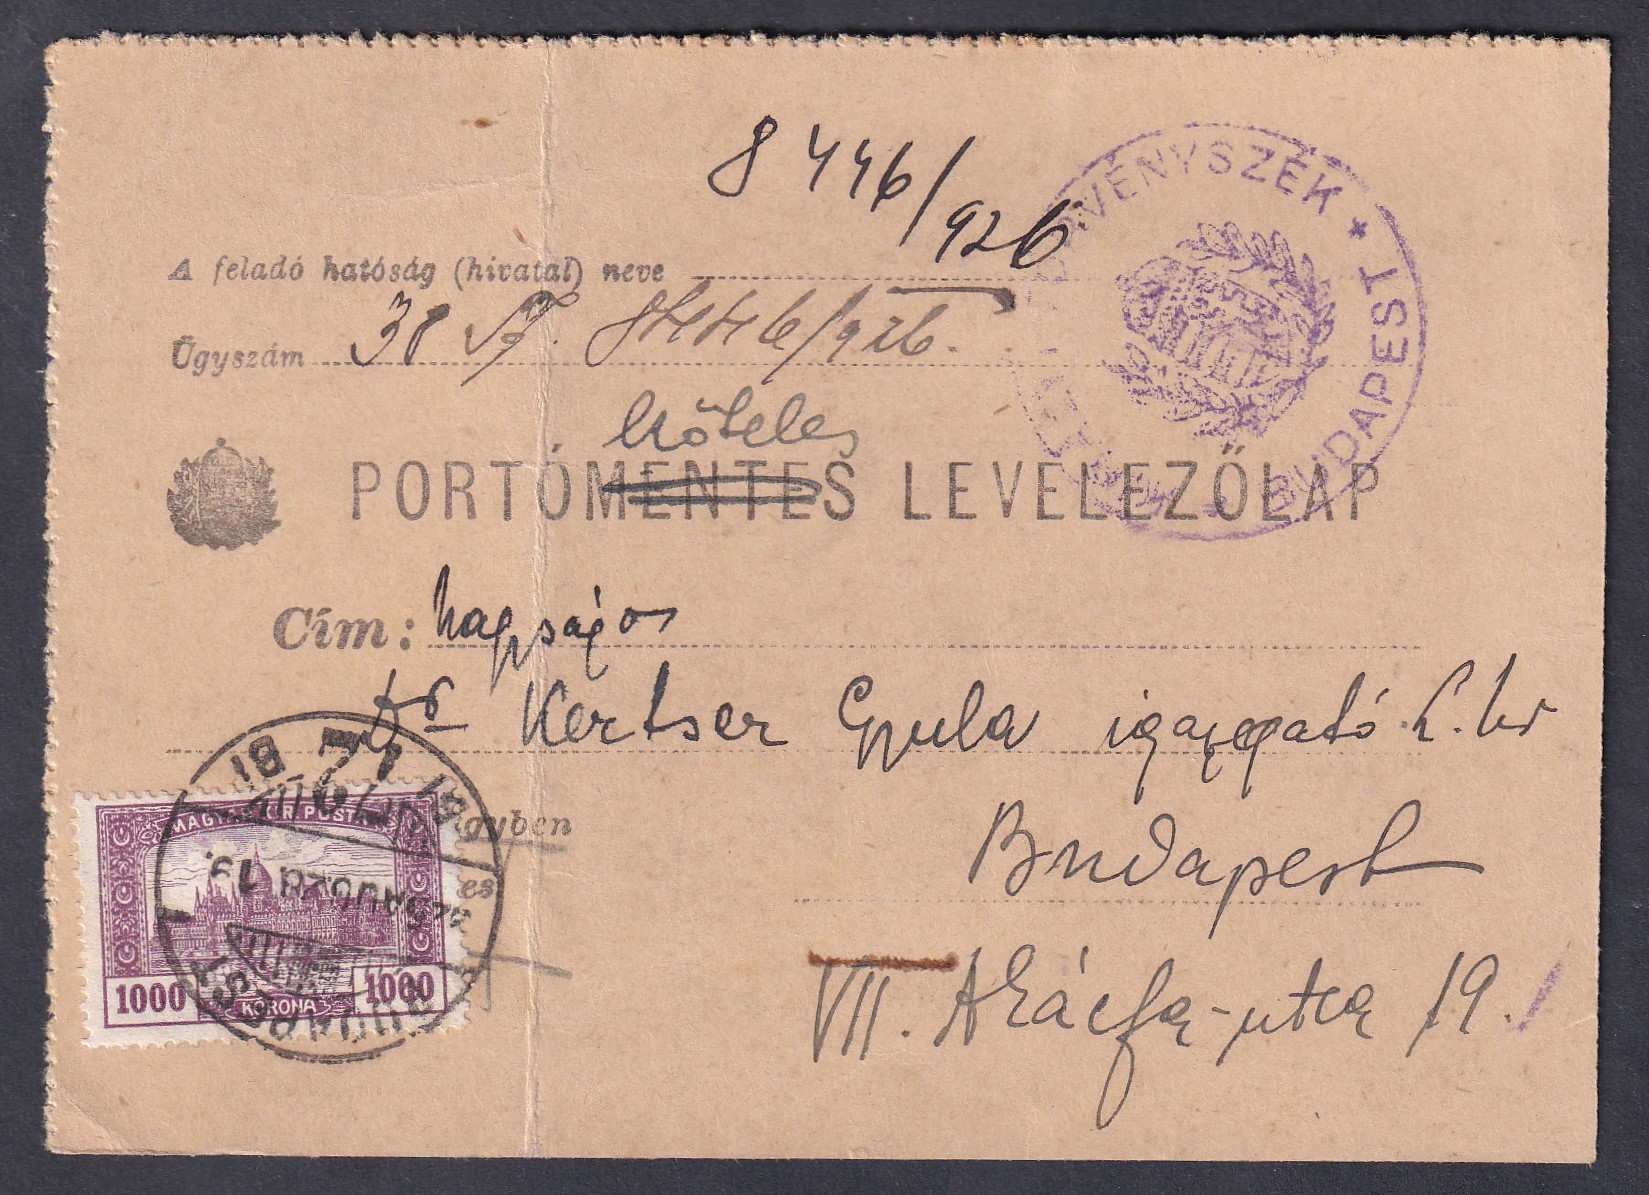 8446/926
TÖRVÉNYSZÉK * BUDAPEST
A feladó hatóság (hivatal) neve
Ügyszám 38 8446/926.
köteles
PORTÓMENTES LEVELEZŐLAP
Cím: Nagyságos
Dr Kertser Gyula igazgató
ügyben
Budapest
es
VII. Akácfa-utca 19.
MAGYAR KIR. POSTA
1000 KORONA 1000
BUDAPEST